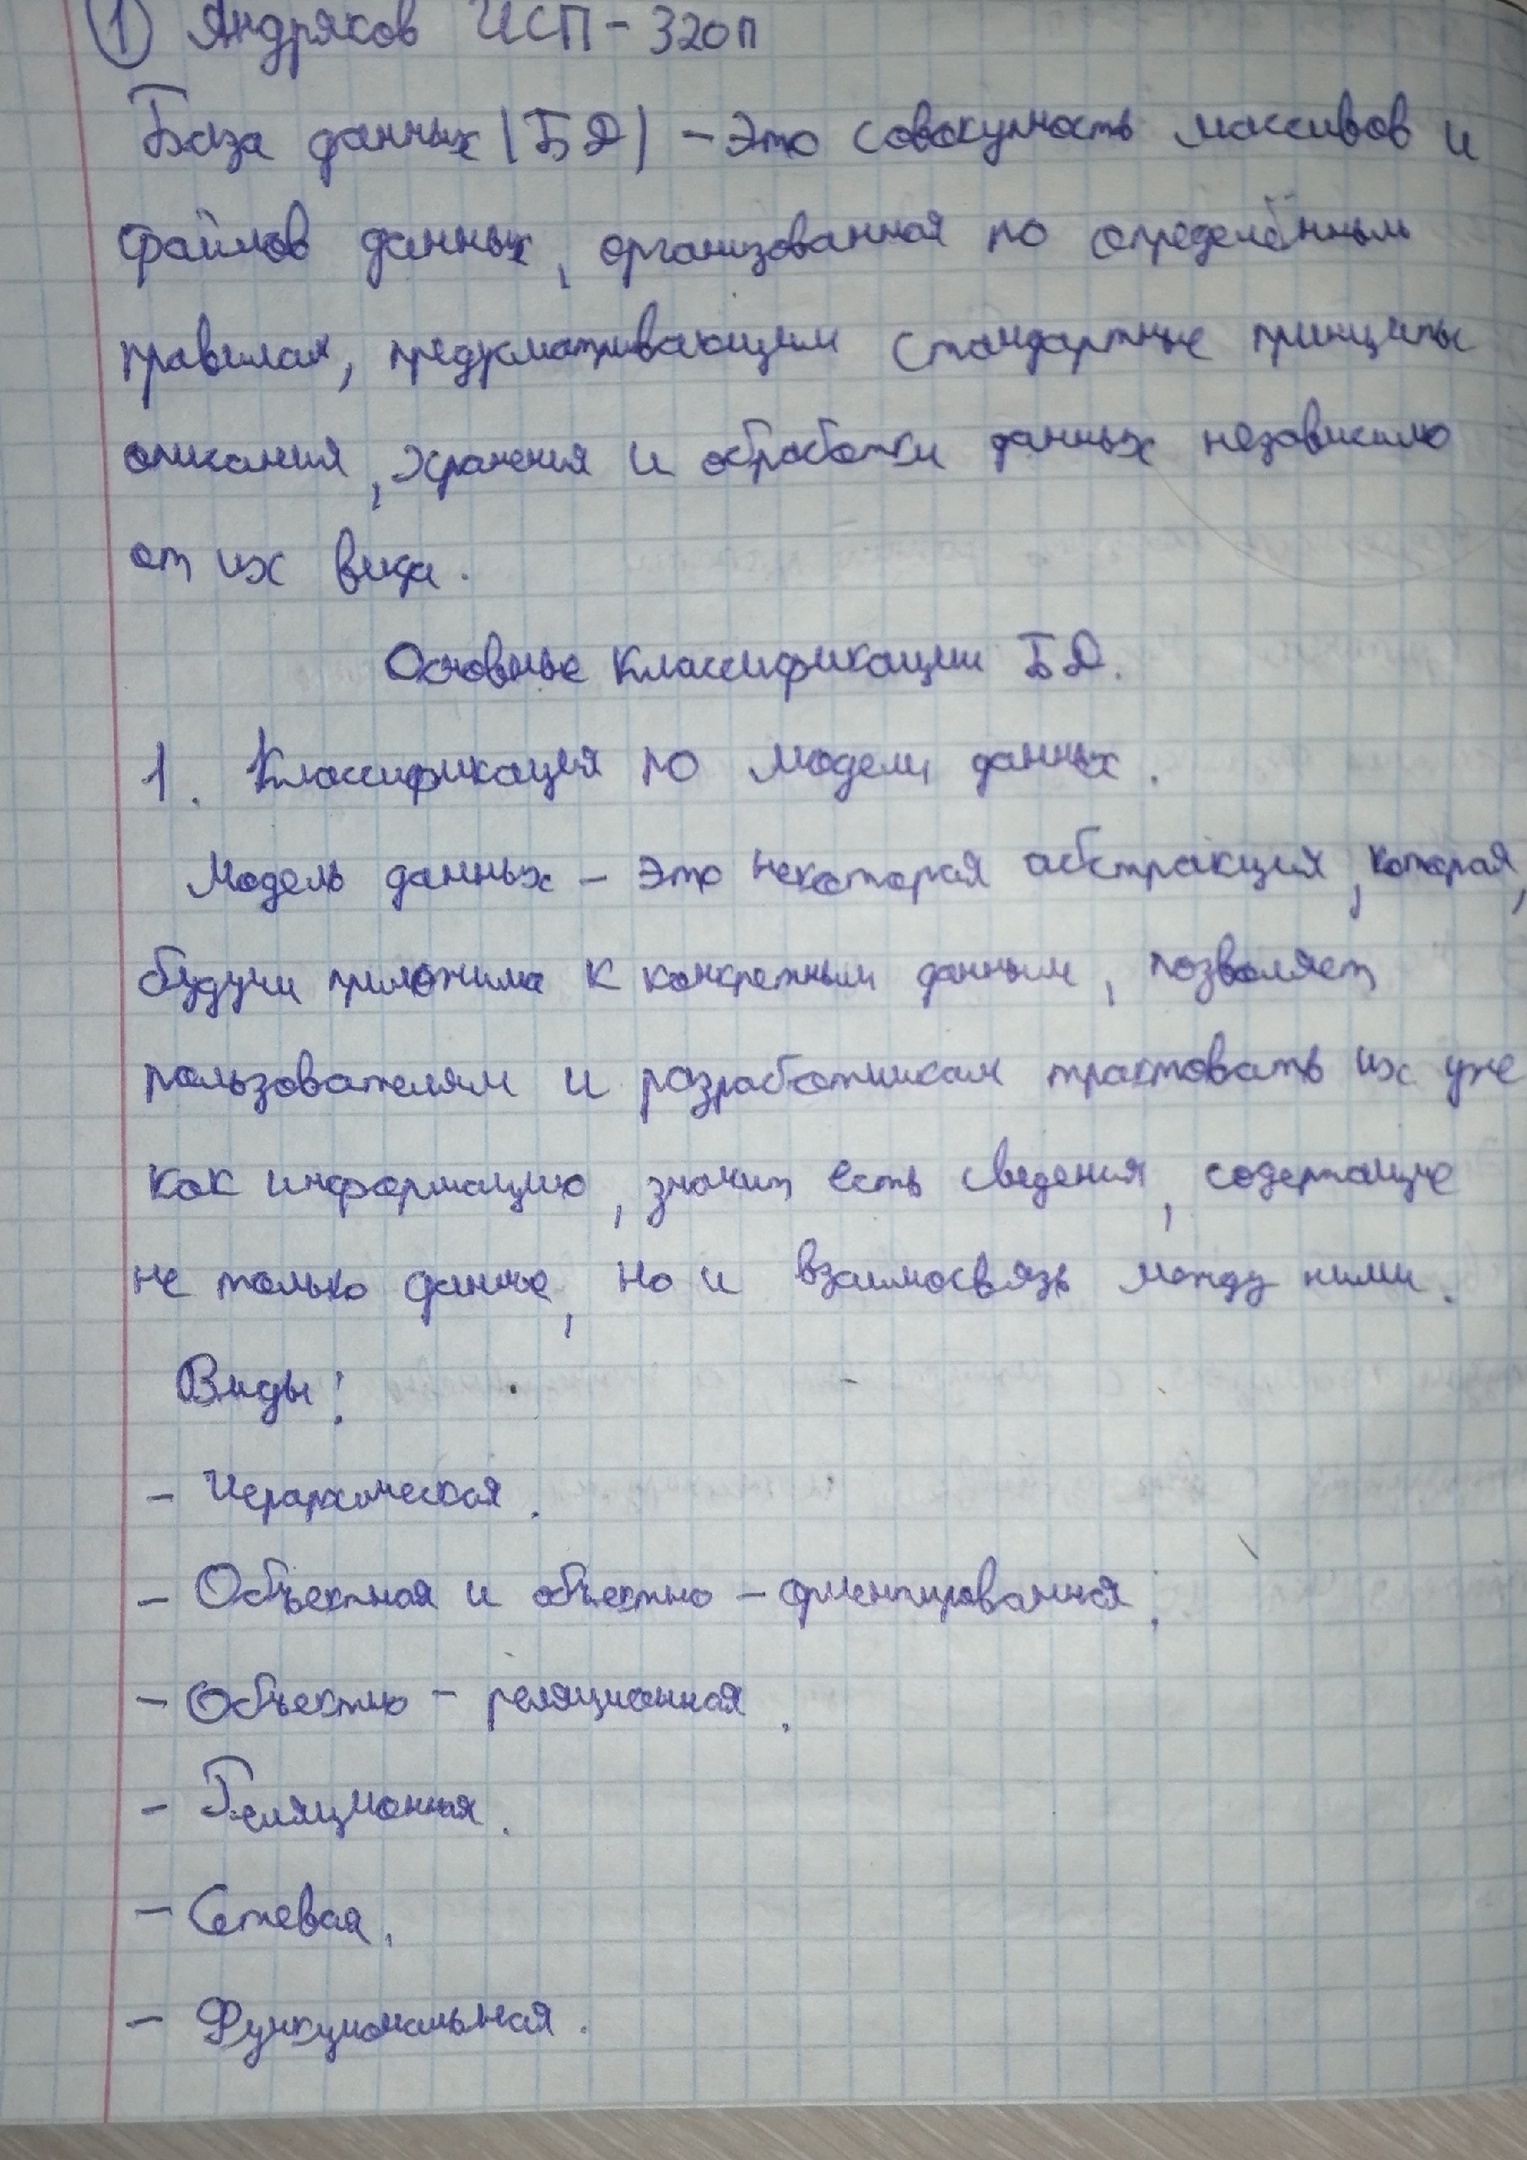 1 Андряков ИСП-320п
База данных (БД) - это совокупность массивов и
файлов данных, организованная по определённым
правилам, предусматривающим стандартные принципы
описания, хранения и обработки данных независимо
от их вида.
Основные классификации БД.
1. Классификация по модели данных.
Модель данных - это некоторая абстракция, которая,
будучи приложима к конкретным данным, позволяет
пользователям и разработчикам трактовать их уже
как информацию, значит есть сведения, содержащие
не только данные, но и взаимосвязь между ними.
Виды:
- Иерархическая.
- Объектная и объектно - ориентированная.
- Объектно - реляционная.
- Реляционная.
- Сетевая.
- Функциональная.